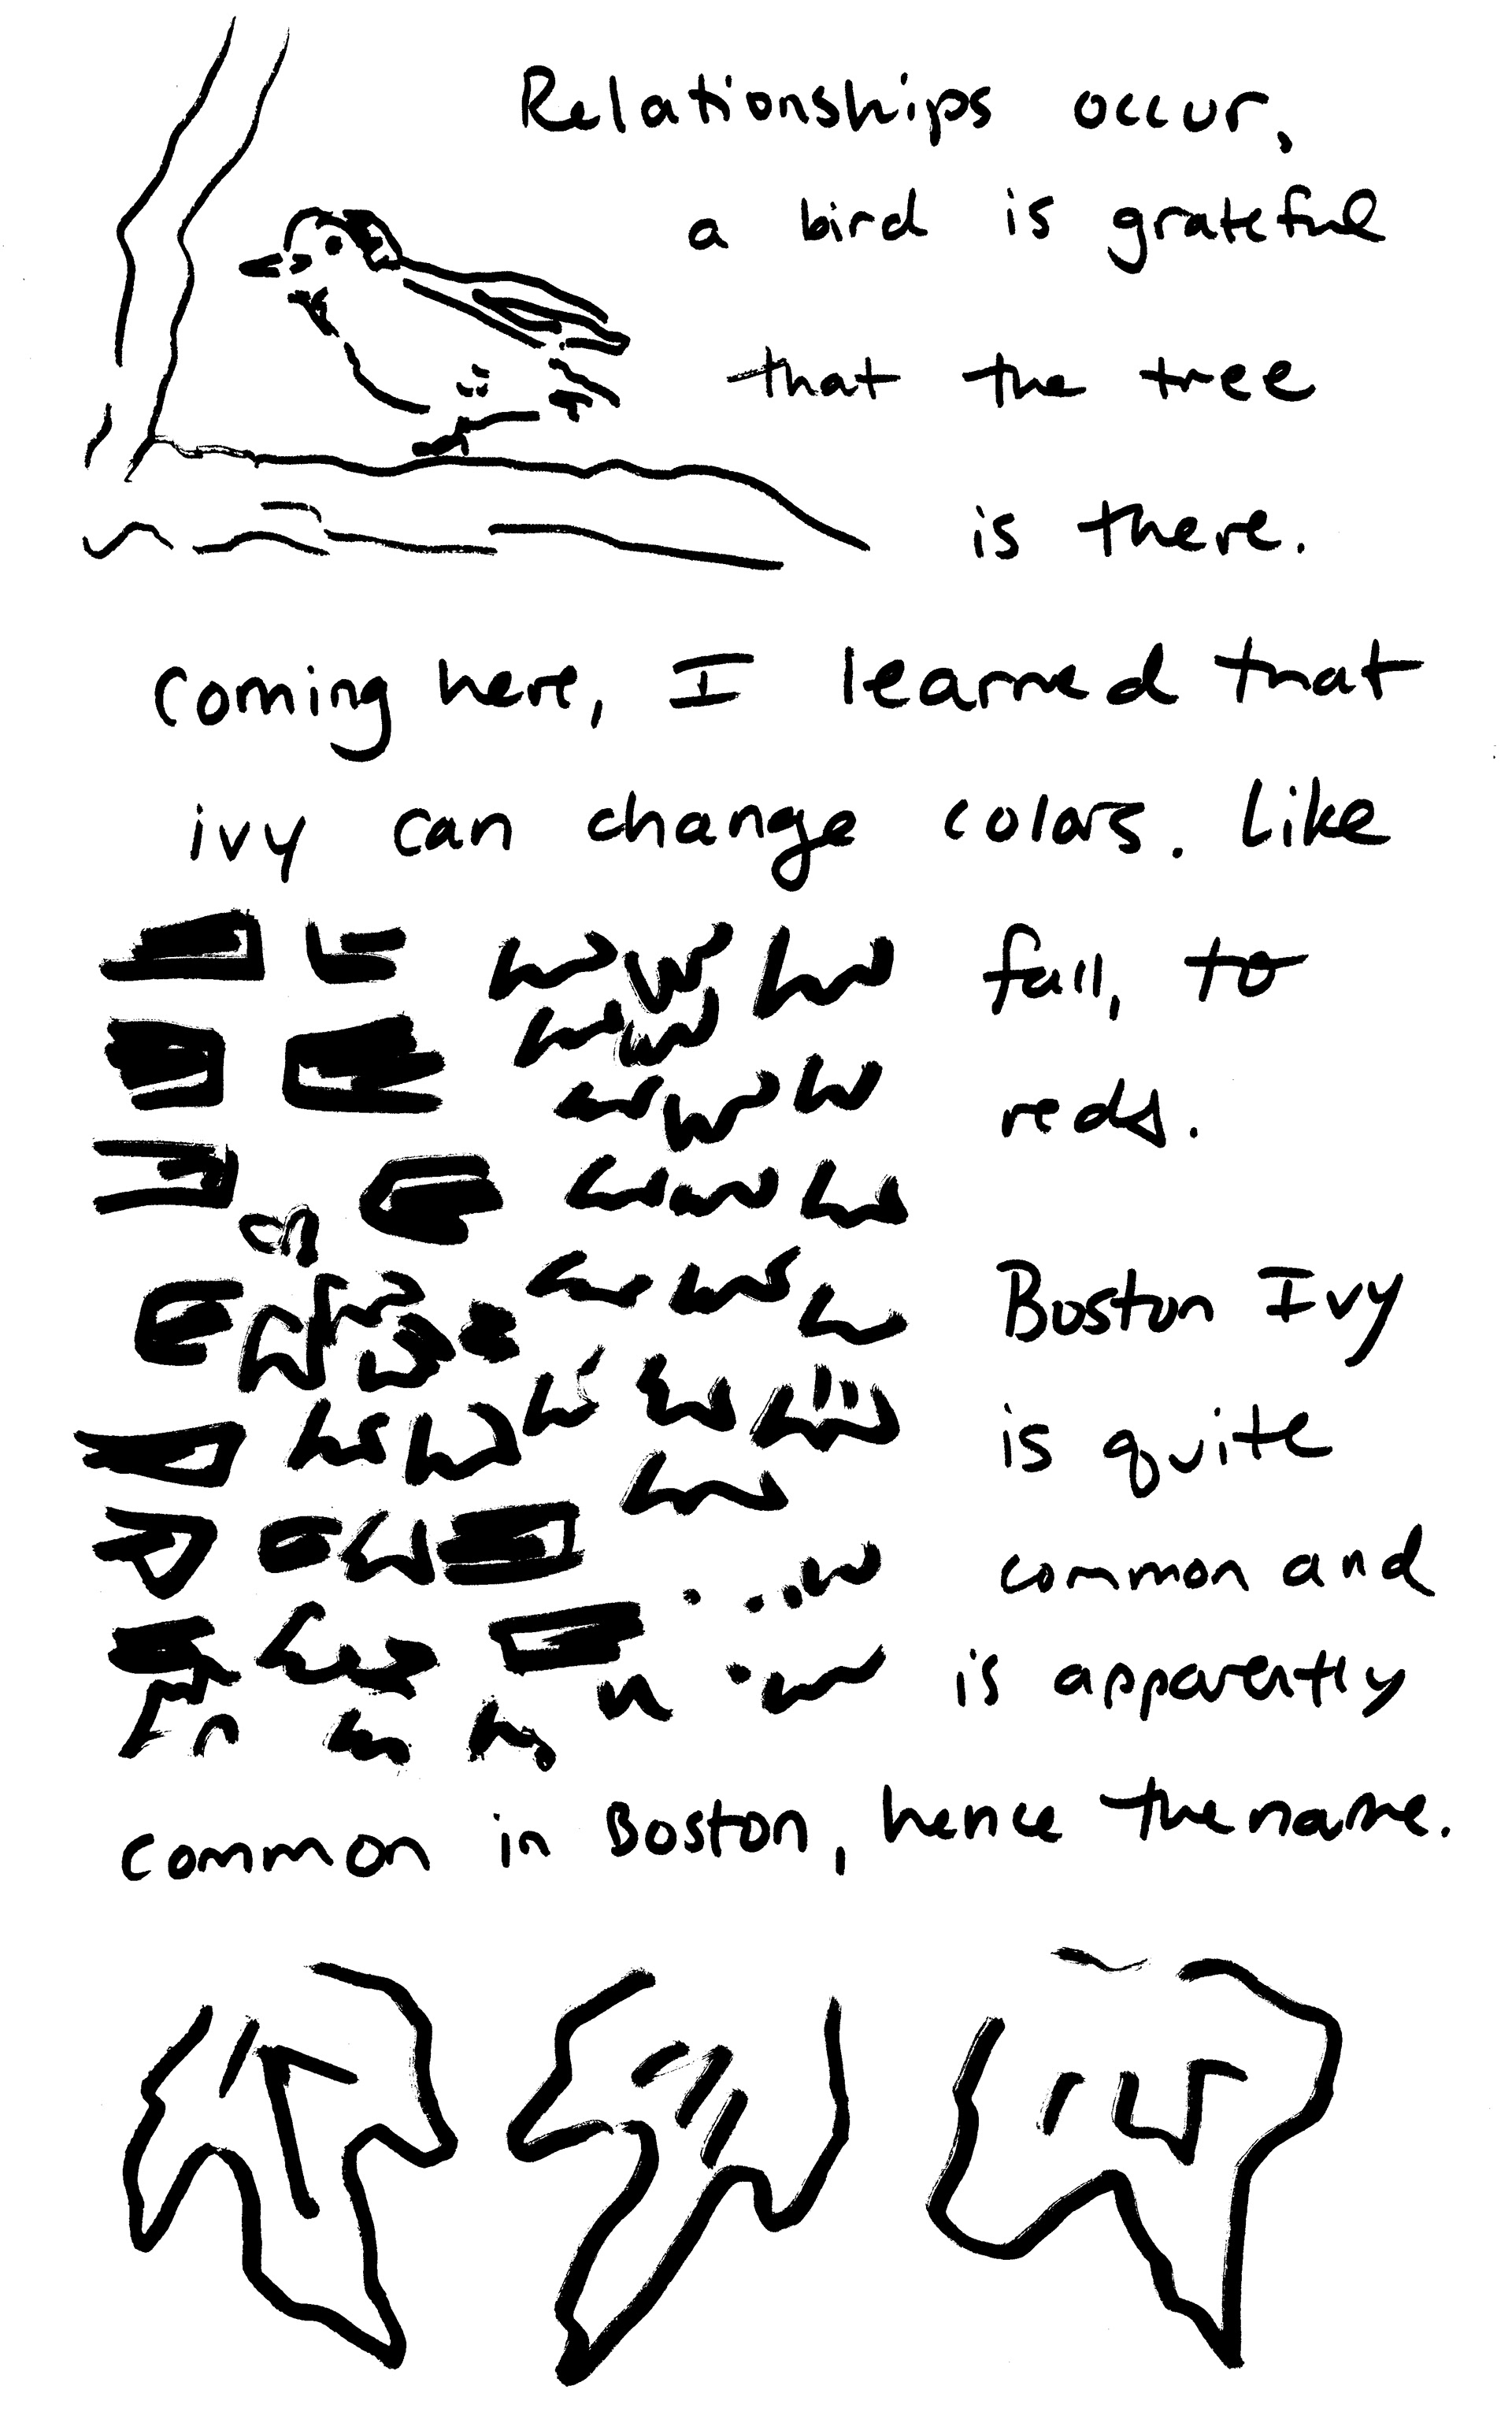 Relationships occur,
a bird is grateful
that the tree
is there.
Coming here, I learned that
ivy can change colors. Like
fall, to
reds.
Boston Ivy
is quite
common and
is apparently
common in Boston, hence the name.